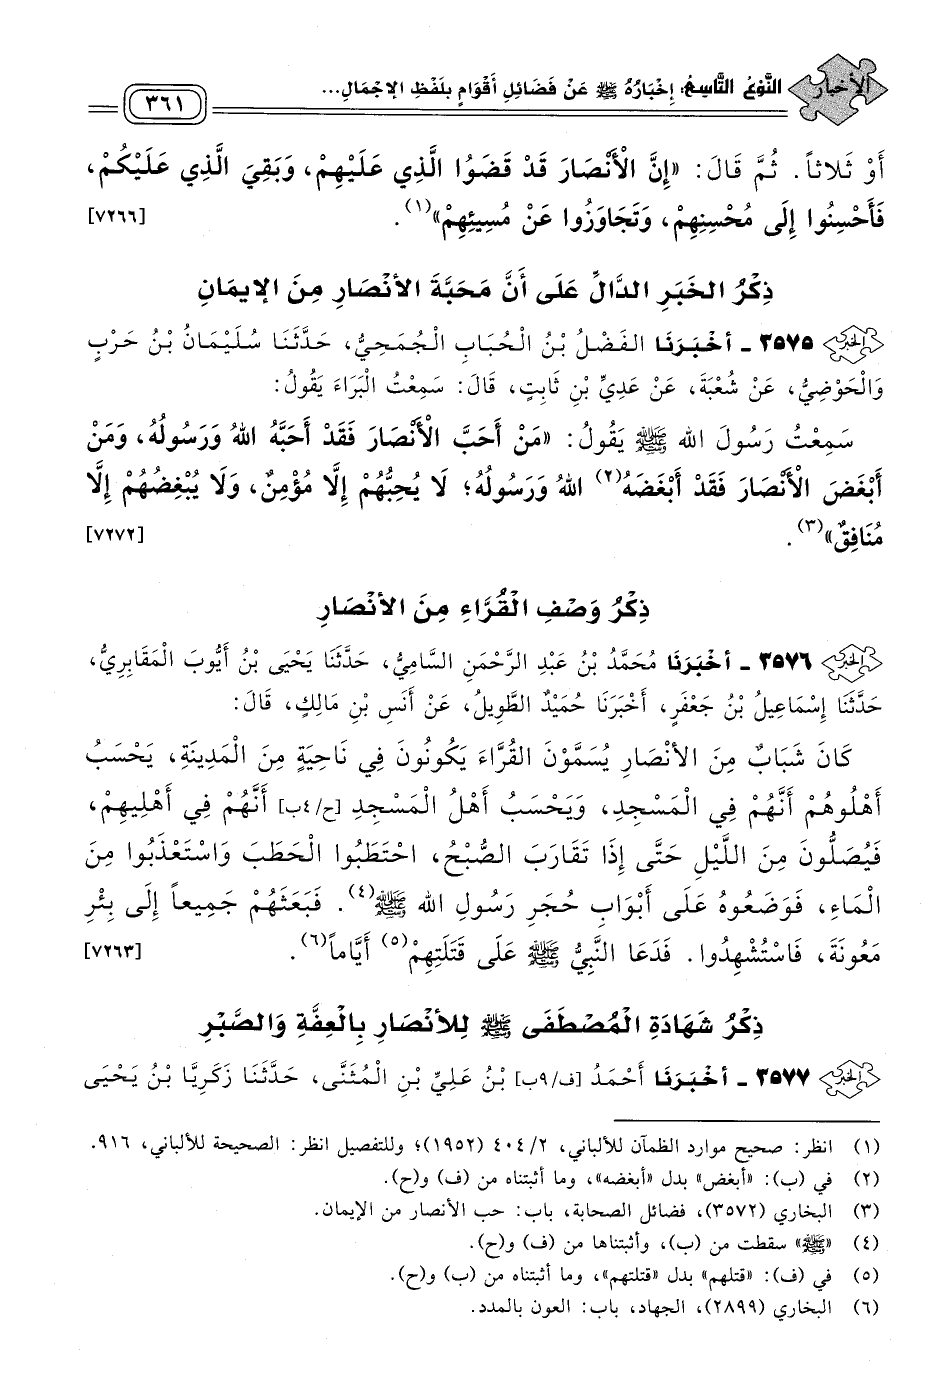 الأخبار
النَّوْعُ التَّاسِعُ: إِخْبَارُهُ ﷺ عَنْ فَضَائِلِ أَقْوَامٍ بِلَفْظِ الإِجْمَالِ...
٣٦١
أَوْ ثَلَاثاً. ثُمَّ قَالَ: «إِنَّ الْأَنْصَارَ قَدْ قَضَوُا الَّذِي عَلَيْهِمْ، وَبَقِيَ الَّذِي عَلَيْكُمْ،
فَأَحْسِنُوا إِلَى مُحْسِنِهِمْ، وَتَجَاوَزُوا عَنْ مُسِيئِهِمْ»(١). [٧٢٦٦]
ذِكْرُ الخَبَرِ الدَّالِّ عَلَى أَنَّ مَحَبَّةَ الأَنْصَارِ مِنَ الإِيمَانِ
الخبر ٣٥٧٥ ـ أخْبَرَنَا الفَضْلُ بْنُ الْحُبَابِ الْجُمَحِيُّ، حَدَّثَنَا سُلَيْمَانُ بْنُ حَرْبٍ
وَالْحَوْضِيُّ، عَنْ شُعْبَةَ، عَنْ عَدِيِّ بْنِ ثَابِتٍ، قَالَ: سَمِعْتُ الْبَرَاءَ يَقُولُ:
سَمِعْتُ رَسُولَ اللهِ ﷺ يَقُولُ: «مَنْ أَحَبَّ الْأَنْصَارَ فَقَدْ أَحَبَّهُ اللهُ وَرَسُولُهُ، وَمَنْ
أَبْغَضَ الْأَنْصَارَ فَقَدْ أَبْغَضَهُ(٢) اللهُ وَرَسُولُهُ؛ لَا يُحِبُّهُمْ إِلَّا مُؤْمِنٌ، وَلَا يُبْغِضُهُمْ إِلَّا
مُنَافِقٌ»(٣). [٧٢٧٢]
ذِكْرُ وَصْفِ الْقُرَّاءِ مِنَ الأَنْصَارِ
الخبر ٣٥٧٦ ـ أخْبَرَنَا مُحَمَّدُ بْنُ عَبْدِ الرَّحْمَنِ السَّامِيُّ، حَدَّثَنَا يَحْيَى بْنُ أَيُّوبَ الْمَقَابِرِيُّ،
حَدَّثَنَا إِسْمَاعِيلُ بْنُ جَعْفَرٍ، أَخْبَرَنَا حُمَيْدٌ الطَّوِيلُ، عَنْ أَنَسِ بْنِ مَالِكٍ، قَالَ:
كَانَ شَبَابٌ مِنَ الأَنْصَارِ يُسَمَّوْنَ الْقُرَّاءَ يَكُونُونَ فِي نَاحِيَةٍ مِنَ الْمَدِينَةِ، يَحْسَبُ
أَهْلُوهُمْ أَنَّهُمْ فِي الْمَسْجِدِ، وَيَحْسَبُ أَهْلُ الْمَسْجِدِ [ح/٤ب] أَنَّهُمْ فِي أَهْلِيهِمْ،
فَيُصَلُّونَ مِنَ اللَّيْلِ حَتَّى إِذَا تَقَارَبَ الصُّبْحُ، احْتَطَبُوا الْحَطَبَ وَاسْتَعْذَبُوا مِنَ
الْمَاءِ، فَوَضَعُوهُ عَلَى أَبْوَابِ حُجَرِ رَسُولِ اللهِ ﷺ(٤). فَبَعَثَهُمْ جَمِيعاً إِلَى بِئْرِ
مَعُونَةَ، فَاسْتُشْهِدُوا. فَدَعَا النَّبِيُّ ﷺ عَلَى قَتَلَتِهِمْ(٥) أَيَّاماً(٦). [٧٢٦٣]
ذِكْرُ شَهَادَةِ الْمُصْطَفَى ﷺ لِلأَنْصَارِ بِالْعِفَّةِ وَالصَّبْرِ
الخبر ٣٥٧٧ ـ أخْبَرَنَا أَحْمَدُ [ف/٩ب] بْنُ عَلِيِّ بْنِ الْمُثَنَّى، حَدَّثَنَا زَكَرِيَّا بْنُ يَحْيَى
(١) انظر: صحيح موارد الظمآن للألباني، ٤٠٤/٢ (١٩٥٢)؛ وللتفصيل انظر: الصحيحة للألباني، ٩١٦.
(٢) في (ب): «أبغض» بدل «أبغضه»، وما أثبتناه من (ف) و(ح).
(٣) البخاري (٣٥٧٢)، فضائل الصحابة، باب: حب الأنصار من الإيمان.
(٤) «ﷺ» سقطت من (ب)، وأثبتناها من (ف) و(ح).
(٥) في (ف): «قتلهم» بدل «قتلتهم»، وما أثبتناه من (ب) و(ح).
(٦) البخاري (٢٨٩٩)، الجهاد، باب: العون بالمدد.